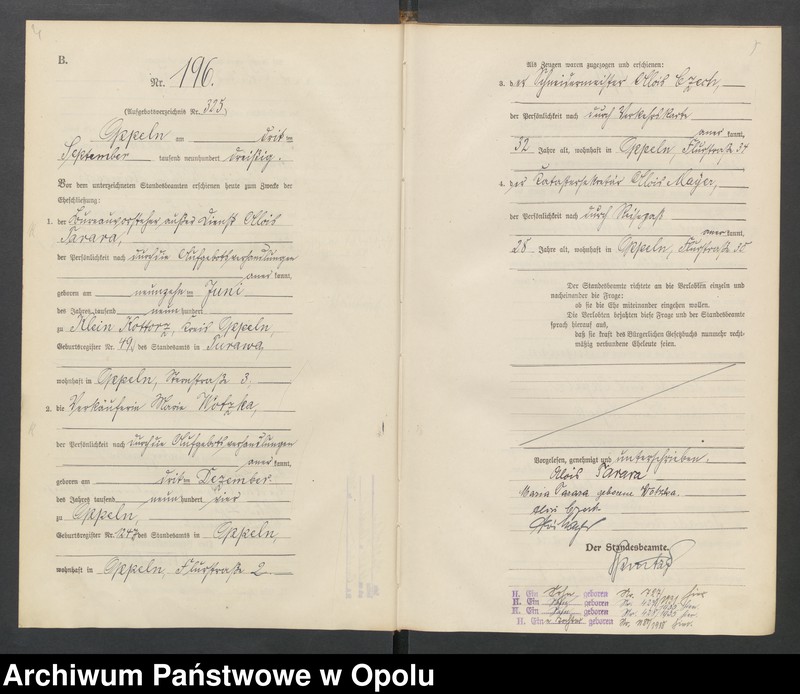 B.
Nr. 196.
(Aufgebotsverzeichnis Nr. 325)
Oppeln am drit en
September tausend neunhundert dreißig.
Vor dem unterzeichneten Standesbeamten erschienen heute zum Zwecke der
Eheschließung:
1. der Bureauvorsteher außer Dienst Alois
Tarara,
der Persönlichkeit nach durch die Aufgebotsverhandlungen
aner kannt,
geboren am neunzehn en Juni
des Jahres tausend neun hundert
zu Klein Kottorz, Kreis Oppeln,
Geburtsregister Nr. 49, des Standesamts in Turawa,
wohnhaft in Oppeln, Sternstraße 3,
2. die Verkäuferin Marie Wotzka,
der Persönlichkeit nach durch die Aufgebotsverhandlungen
aner kannt,
geboren am drit en Dezember
des Jahres tausend neun hundert vier
zu Oppeln,
Geburtsregister Nr. 1247 des Standesamts in Oppeln,
wohnhaft in Oppeln, Flurstraße 2
Als Zeugen waren zugezogen und erschienen:
3. der Schneidermeister Alois Czech,
der Persönlichkeit nach durch Verkehrskarte
aner kannt,
32 Jahre alt, wohnhaft in Oppeln, Flurstraße 34
4. der Katastersekretär Alois Mayer,
der Persönlichkeit nach durch Reisepaß
aner kannt,
28 Jahre alt, wohnhaft in Oppeln, Flurstraße
Der Standesbeamte richtete an die Verlobten einzeln und
nacheinander die Frage:
ob sie die Ehe miteinander eingehen wollen.
Die Verlobten bejahten diese Frage und der Standesbeamte
sprach hierauf aus,
daß sie kraft des Bürgerlichen Gesetzbuchs nunmehr recht-
mäßig verbundene Eheleute seien.
Vorgelesen, genehmigt und unterschrieben.
Alois Tarara
Maria Tarara geborene Wotzka.
Alois Czech
Der Standesbeamte.
II. Ein Sohn geboren Nr. hier
II. Ein Sohn geboren Nr.
II. Ein Sohn geboren Nr.
II. Eine Tochter geboren Nr. hier.
Archiwum Państwowe w Opolu